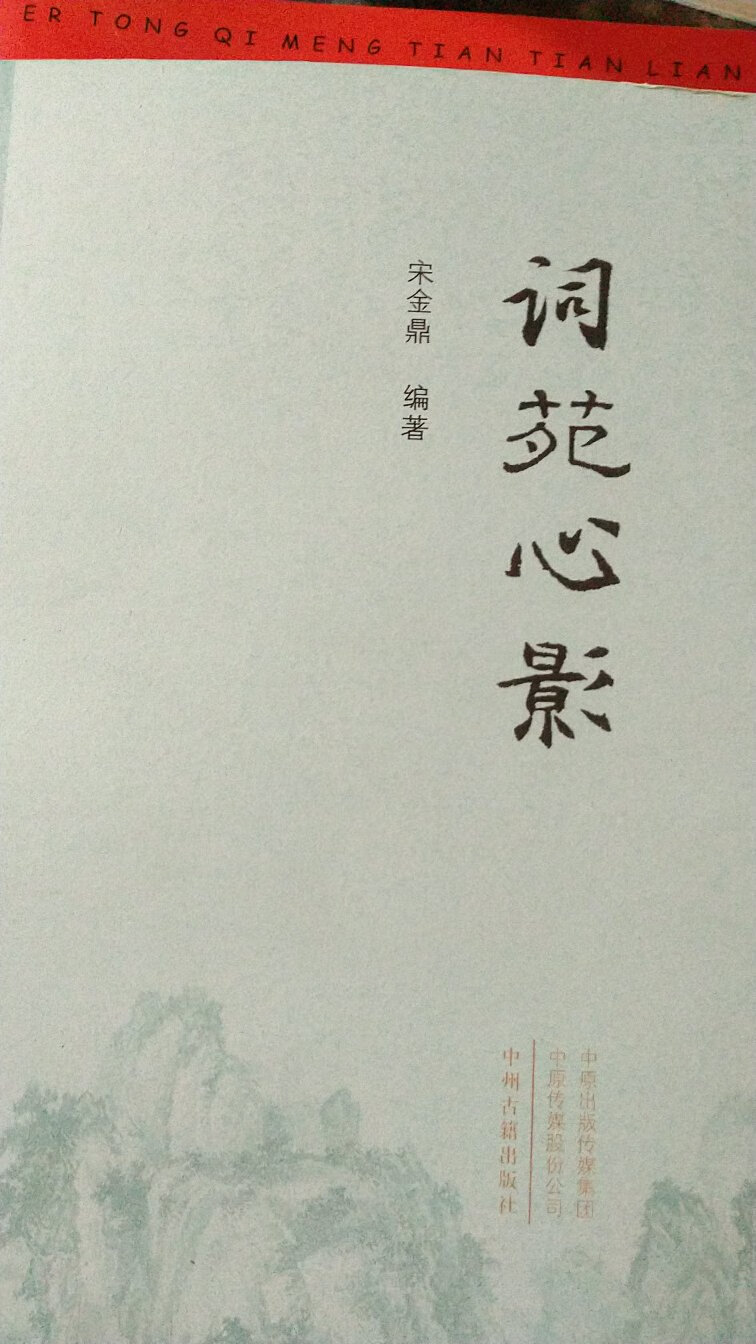 ER TONG QI MENG TIAN TIAN LIAN
词苑心影
宋金鼎 编著
中原出版传媒集团
中原传媒股份公司
中州古籍出版社